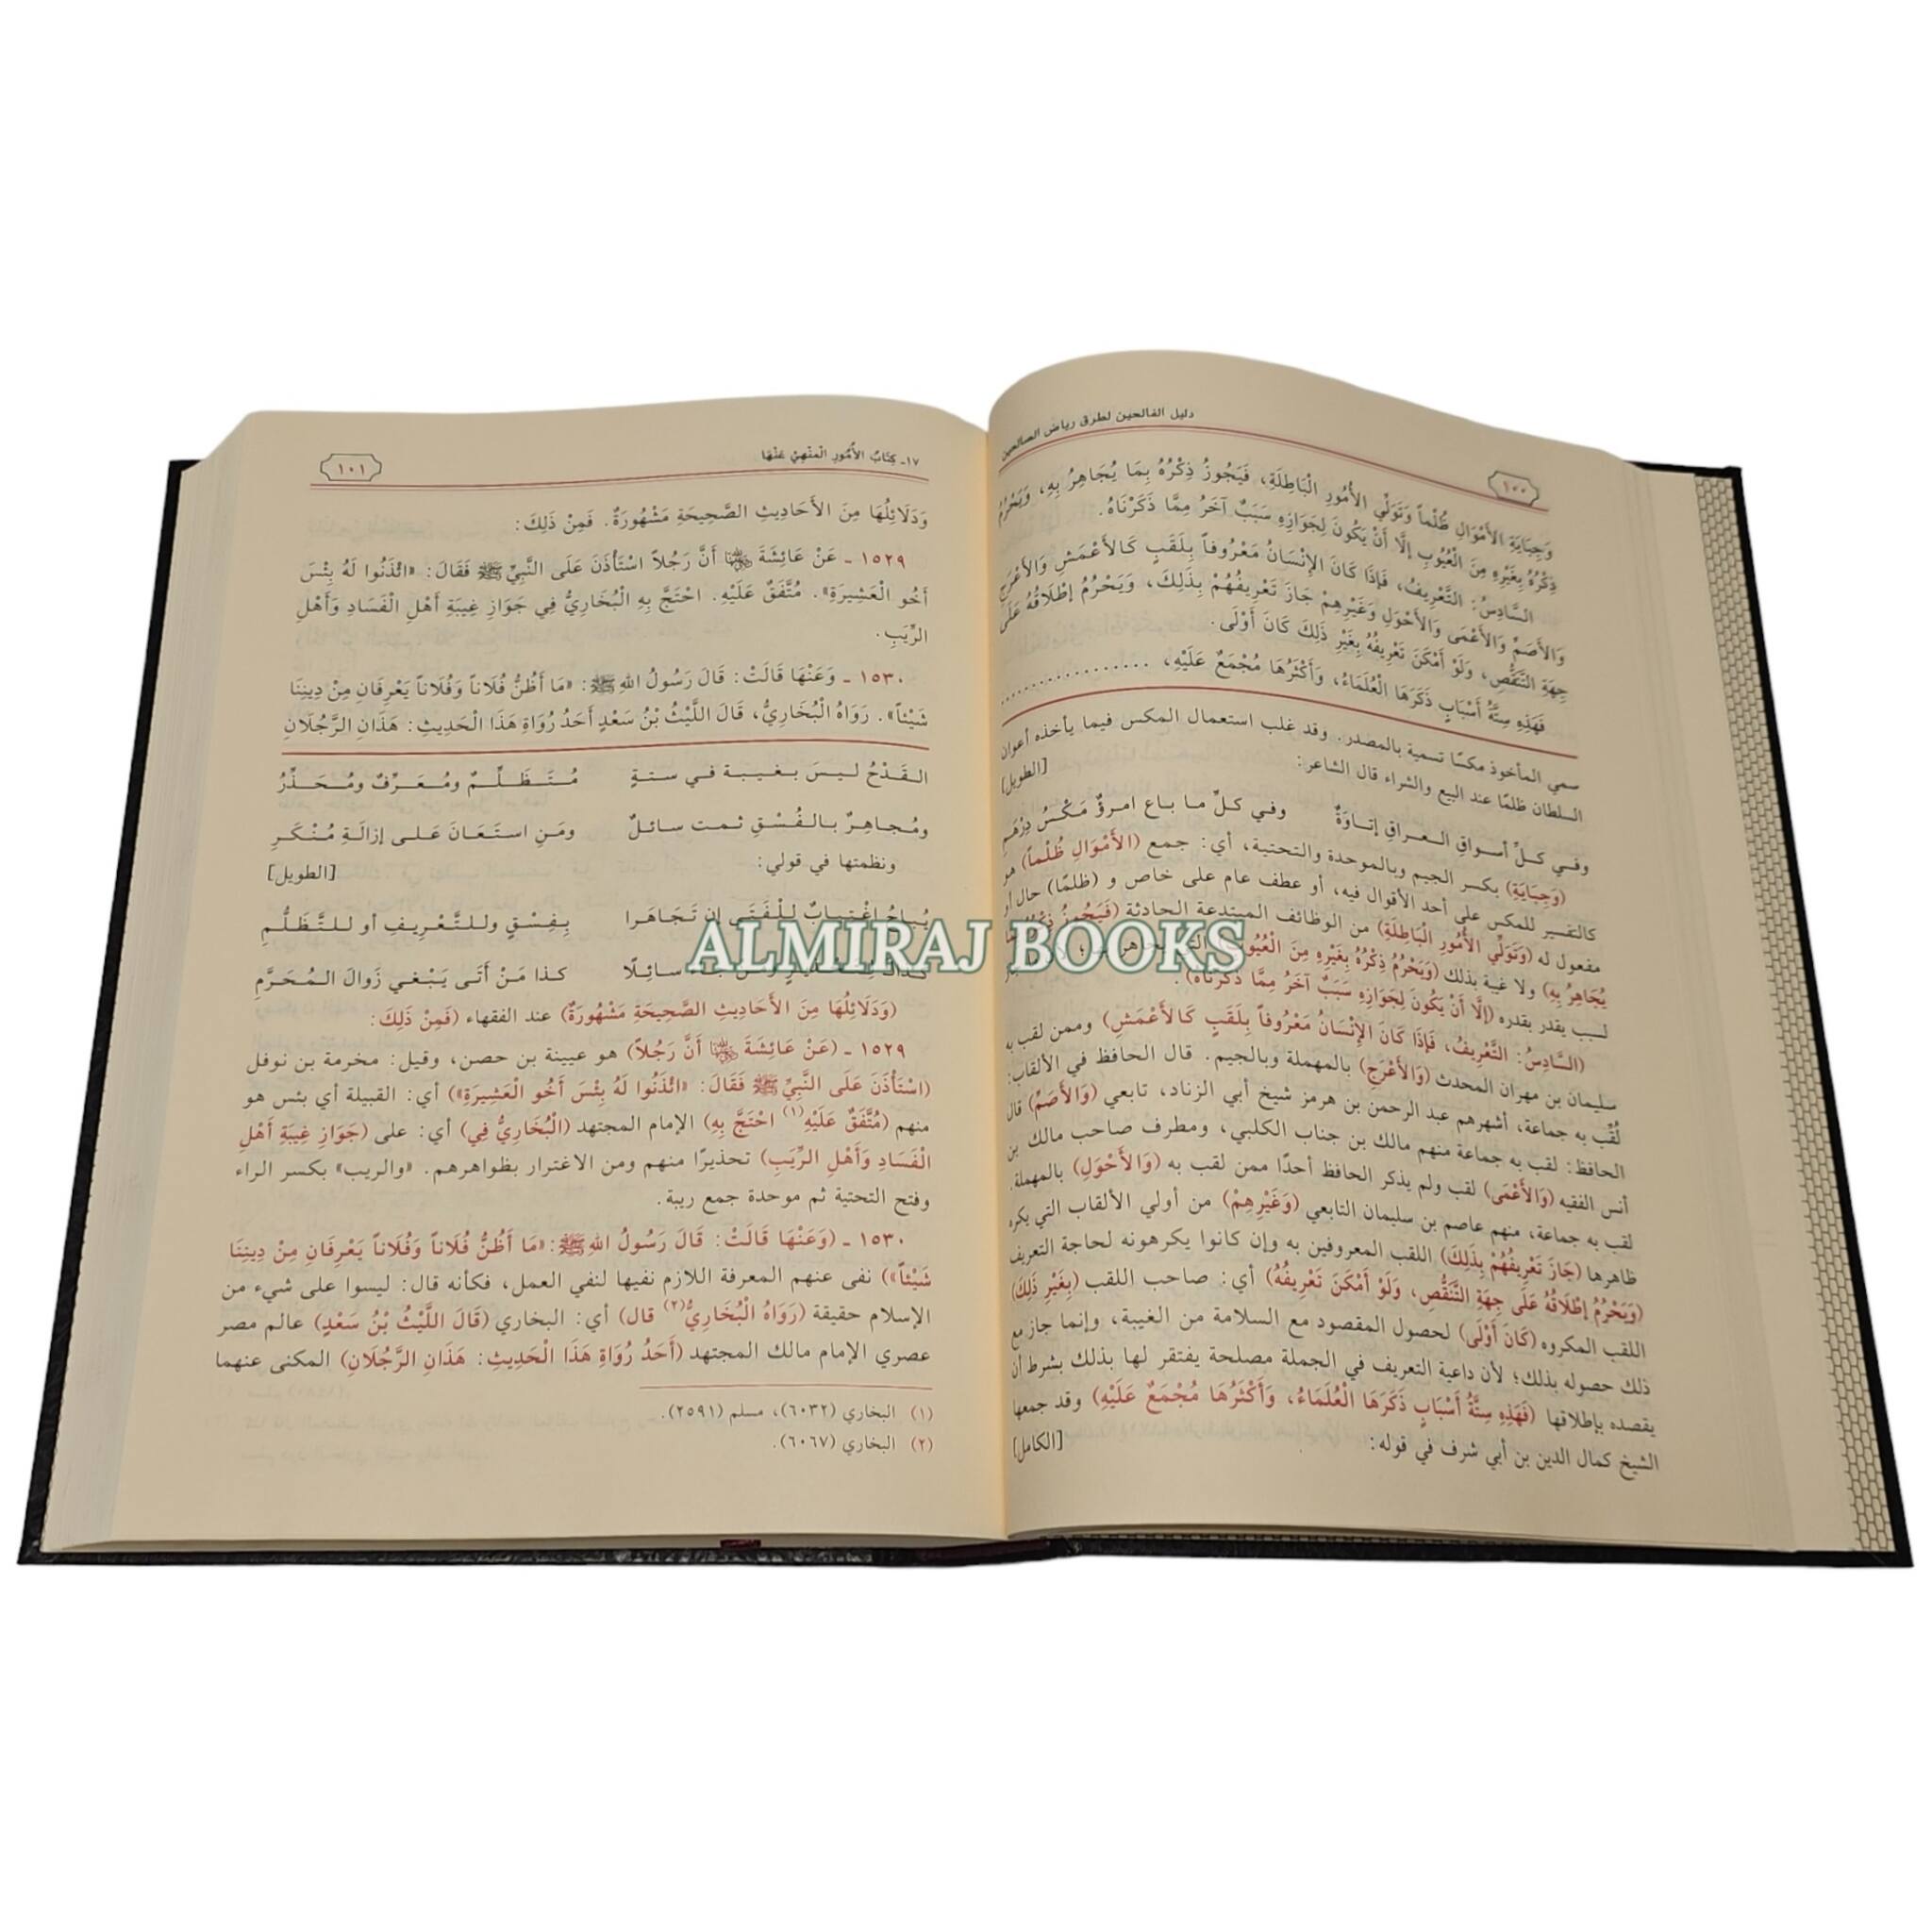 دليل الفالحين لطرق رياض الصالحين
١٠٠
وَجِبَايَةِ الأَمْوَالِ ظُلْماً وَتَوَلِّي الأُمُورِ الْبَاطِلَةِ، فَيَجُوزُ ذِكْرُهُ بِمَا يُجَاهِرُ بِهِ، وَيَحْرُمُ
ذِكْرُهُ بِغَيْرِهِ مِنَ الْعُيُوبِ إِلَّا أَنْ يَكُونَ لِجَوَازِهِ سَبَبٌ آخَرُ مِمَّا ذَكَرْنَاهُ.
السَّادِسُ: التَّعْرِيفُ، فَإِذَا كَانَ الإِنْسَانُ مَعْرُوفاً بِلَقَبٍ كَالأَعْمَشِ وَالأَعْرَجِ
وَالأَصَمِّ وَالأَعْمَى وَالأَحْوَلِ وَغَيْرِهِمْ جَازَ تَعْرِيفُهُمْ بِذَلِكَ، وَيَحْرُمُ إِطْلَاقُهُ عَلَى
جِهَةِ التَّنَقُّصِ، وَلَوْ أَمْكَنَ تَعْرِيفُهُ بِغَيْرِ ذَلِكَ كَانَ أَوْلَى.
فَهَذِهِ سِتَّةُ أَسْبَابٍ ذَكَرَهَا الْعُلَمَاءُ، وَأَكْثَرُهَا مُجْمَعٌ عَلَيْهِ، ..................
سمي المأخوذ مكسًا تسمية بالمصدر. وقد غلب استعمال المكس فيما يأخذه أعوان
السلطان ظلمًا عند البيع والشراء قال الشاعر: [الطويل]
وفي كلِّ أسواقِ العراقِ إتاوَةٌ وفي كلِّ ما باع امرؤٌ مَكْسُ دِرْهَمِ
(وَجِبَايَةِ) بكسر الجيم وبالموحدة والتحتية، أي: جمع (الأَمْوَالِ ظُلْماً) هو
كالتفسير للمكس على أحد الأقوال فيه، أو عطف عام على خاص و (ظلمًا) حال أو
مفعول له (وَتَوَلِّي الأُمُورِ الْبَاطِلَةِ) من الوظائف المبتدعة الحادثة (فَيَجُوزُ ذِكْرُهُ
يُجَاهِرُ بِهِ) ولا غيبة بذلك (وَيَحْرُمُ ذِكْرُهُ بِغَيْرِهِ مِنَ الْعُيُوبِ)
لسبب يقدر بقدره (إِلَّا أَنْ يَكُونَ لِجَوَازِهِ سَبَبٌ آخَرُ مِمَّا ذَكَرْنَاهُ).
(السَّادِسُ: التَّعْرِيفُ، فَإِذَا كَانَ الإِنْسَانُ مَعْرُوفاً بِلَقَبٍ كَالأَعْمَشِ) وممن لقب به
سليمان بن مهران المحدث (وَالأَعْرَجِ) بالمهملة وبالجيم. قال الحافظ في الألقاب:
لُقِّب به جماعة، أشهرهم عبد الرحمن بن هرمز شيخ أبي الزناد، تابعي (وَالأَصَمِّ) قال
الحافظ: لقب به جماعة منهم مالك بن جناب الكلبي، ومطرف صاحب مالك بن
أنس الفقيه (وَالأَعْمَى) لقب ولم يذكر الحافظ أحدًا ممن لقب به (وَالأَحْوَلِ) بالمهملة.
لقب به جماعة، منهم عاصم بن سليمان التابعي (وَغَيْرِهِمْ) من أولي الألقاب التي يكره
ظاهرها (جَازَ تَعْرِيفُهُمْ بِذَلِكَ) اللقب المعروفين به وإن كانوا يكرهونه لحاجة التعريف
(وَيَحْرُمُ إِطْلَاقُهُ عَلَى جِهَةِ التَّنَقُّصِ، وَلَوْ أَمْكَنَ تَعْرِيفُهُ) أي: صاحب اللقب (بِغَيْرِ ذَلِكَ)
اللقب المكروه (كَانَ أَوْلَى) لحصول المقصود مع السلامة من الغيبة، وإنما جاز مع
ذلك حصوله بذلك؛ لأن داعية التعريف في الجملة مصلحة يفتقر لها بذلك بشرط أن
يقصده بإطلاقها (فَهَذِهِ سِتَّةُ أَسْبَابٍ ذَكَرَهَا الْعُلَمَاءُ، وَأَكْثَرُهَا مُجْمَعٌ عَلَيْهِ) وقد جمعها
الشيخ كمال الدين بن أبي شرف في قوله: [الكامل]
١٧ـ كِتَابُ الأُمُورِ الْمَنْهِيِّ عَنْهَا
١٠١
وَدَلَائِلُهَا مِنَ الأَحَادِيثِ الصَّحِيحَةِ مَشْهُورَةٌ. فَمِنْ ذَلِكَ:
١٥٢٩ ـ عَنْ عَائِشَةَ رضي الله عنها أَنَّ رَجُلاً اسْتَأْذَنَ عَلَى النَّبِيِّ ﷺ فَقَالَ: «ائْذَنُوا لَهُ بِئْسَ
أَخُو الْعَشِيرَةِ». مُتَّفَقٌ عَلَيْهِ. احْتَجَّ بِهِ الْبُخَارِيُّ فِي جَوَازِ غِيبَةِ أَهْلِ الْفَسَادِ وَأَهْلِ
الرِّيَبِ.
١٥٣٠ ـ وَعَنْهَا قَالَتْ: قَالَ رَسُولُ اللهِ ﷺ: «مَا أَظُنُّ فُلَاناً وَفُلَاناً يَعْرِفَانِ مِنْ دِينِنَا
شَيْئاً». رَوَاهُ الْبُخَارِيُّ، قَالَ اللَّيْثُ بْنُ سَعْدٍ أَحَدُ رُوَاةِ هَذَا الْحَدِيثِ: هَذَانِ الرَّجُلَانِ
القَدْحُ ليسَ بغيبة في ستةٍ مُتَظَلِّمٌ ومُعَرِّفٌ ومُحَذِّرُ
ومُجاهِرٌ بالفُسْقِ ثمت سائلٌ ومَنِ استَعَانَ عَلى إزالَةِ مُنْكَرِ
ونظمتها في قولي: [الطويل]
يُباحُ اغْتِيابٌ لِلْفَتَى إن تَجَاهَرا بِفِسْقٍ وللتَّعْرِيفِ أو للتَّظَلُّمِ
سائِلًا كذا مَنْ أتَى يَبْغي زَوالَ المُحَرَّمِ
(وَدَلَائِلُهَا مِنَ الأَحَادِيثِ الصَّحِيحَةِ مَشْهُورَةٌ) عند الفقهاء (فَمِنْ ذَلِكَ:
١٥٢٩ ـ (عَنْ عَائِشَةَ رضي الله عنها أَنَّ رَجُلاً) هو عيينة بن حصن، وقيل: مخرمة بن نوفل
(اسْتَأْذَنَ عَلَى النَّبِيِّ ﷺ فَقَالَ: «ائْذَنُوا لَهُ بِئْسَ أَخُو الْعَشِيرَةِ») أي: القبيلة أي بئس هو
منهم (مُتَّفَقٌ عَلَيْهِ(١) احْتَجَّ بِهِ) الإمام المجتهد (الْبُخَارِيُّ فِي) أي: على (جَوَازِ غِيبَةِ أَهْلِ
الْفَسَادِ وَأَهْلِ الرِّيَبِ) تحذيرًا منهم ومن الاغترار بظواهرهم. «والريب» بكسر الراء
وفتح التحتية ثم موحدة جمع ريبة.
١٥٣٠ ـ (وَعَنْهَا قَالَتْ: قَالَ رَسُولُ اللهِ ﷺ: «مَا أَظُنُّ فُلَاناً وَفُلَاناً يَعْرِفَانِ مِنْ دِينِنَا
شَيْئاً») نفى عنهم المعرفة اللازم نفيها لنفي العمل، فكأنه قال: ليسوا على شيء من
الإسلام حقيقة (رَوَاهُ الْبُخَارِيُّ(٢) قال) أي: البخاري (قَالَ اللَّيْثُ بْنُ سَعْدٍ) عالم مصر
عصري الإمام مالك المجتهد (أَحَدُ رُوَاةِ هَذَا الْحَدِيثِ: هَذَانِ الرَّجُلَانِ) المكنى عنهما
(١) البخاري (٦٠٣٢)، مسلم (٢٥٩١).
(٢) البخاري (٦٠٦٧).
ALMIRAJ BOOKS